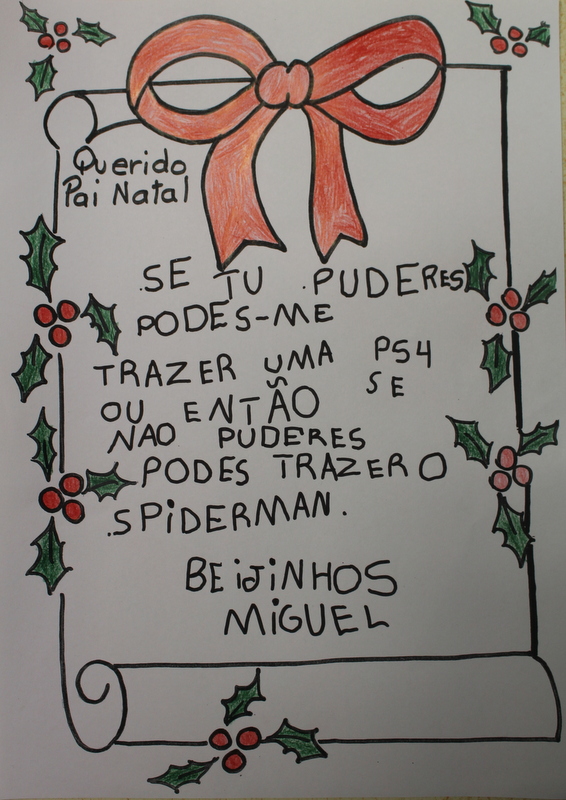 Querido
Pai Natal
.SE TU .PUDERES
PODES-ME
TRAZER UMA PS4
OU ENTÃO SE
NAO PUDERES
PODES TRAZER O
.SPiDERMAN.
BEiJiNHOS
MiGUEL